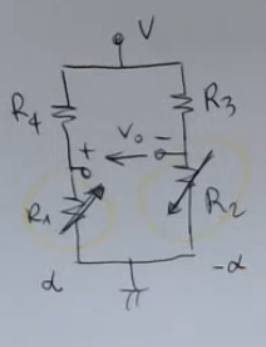 V
R4
R3
+ Vo -
R1
R2
α
-α